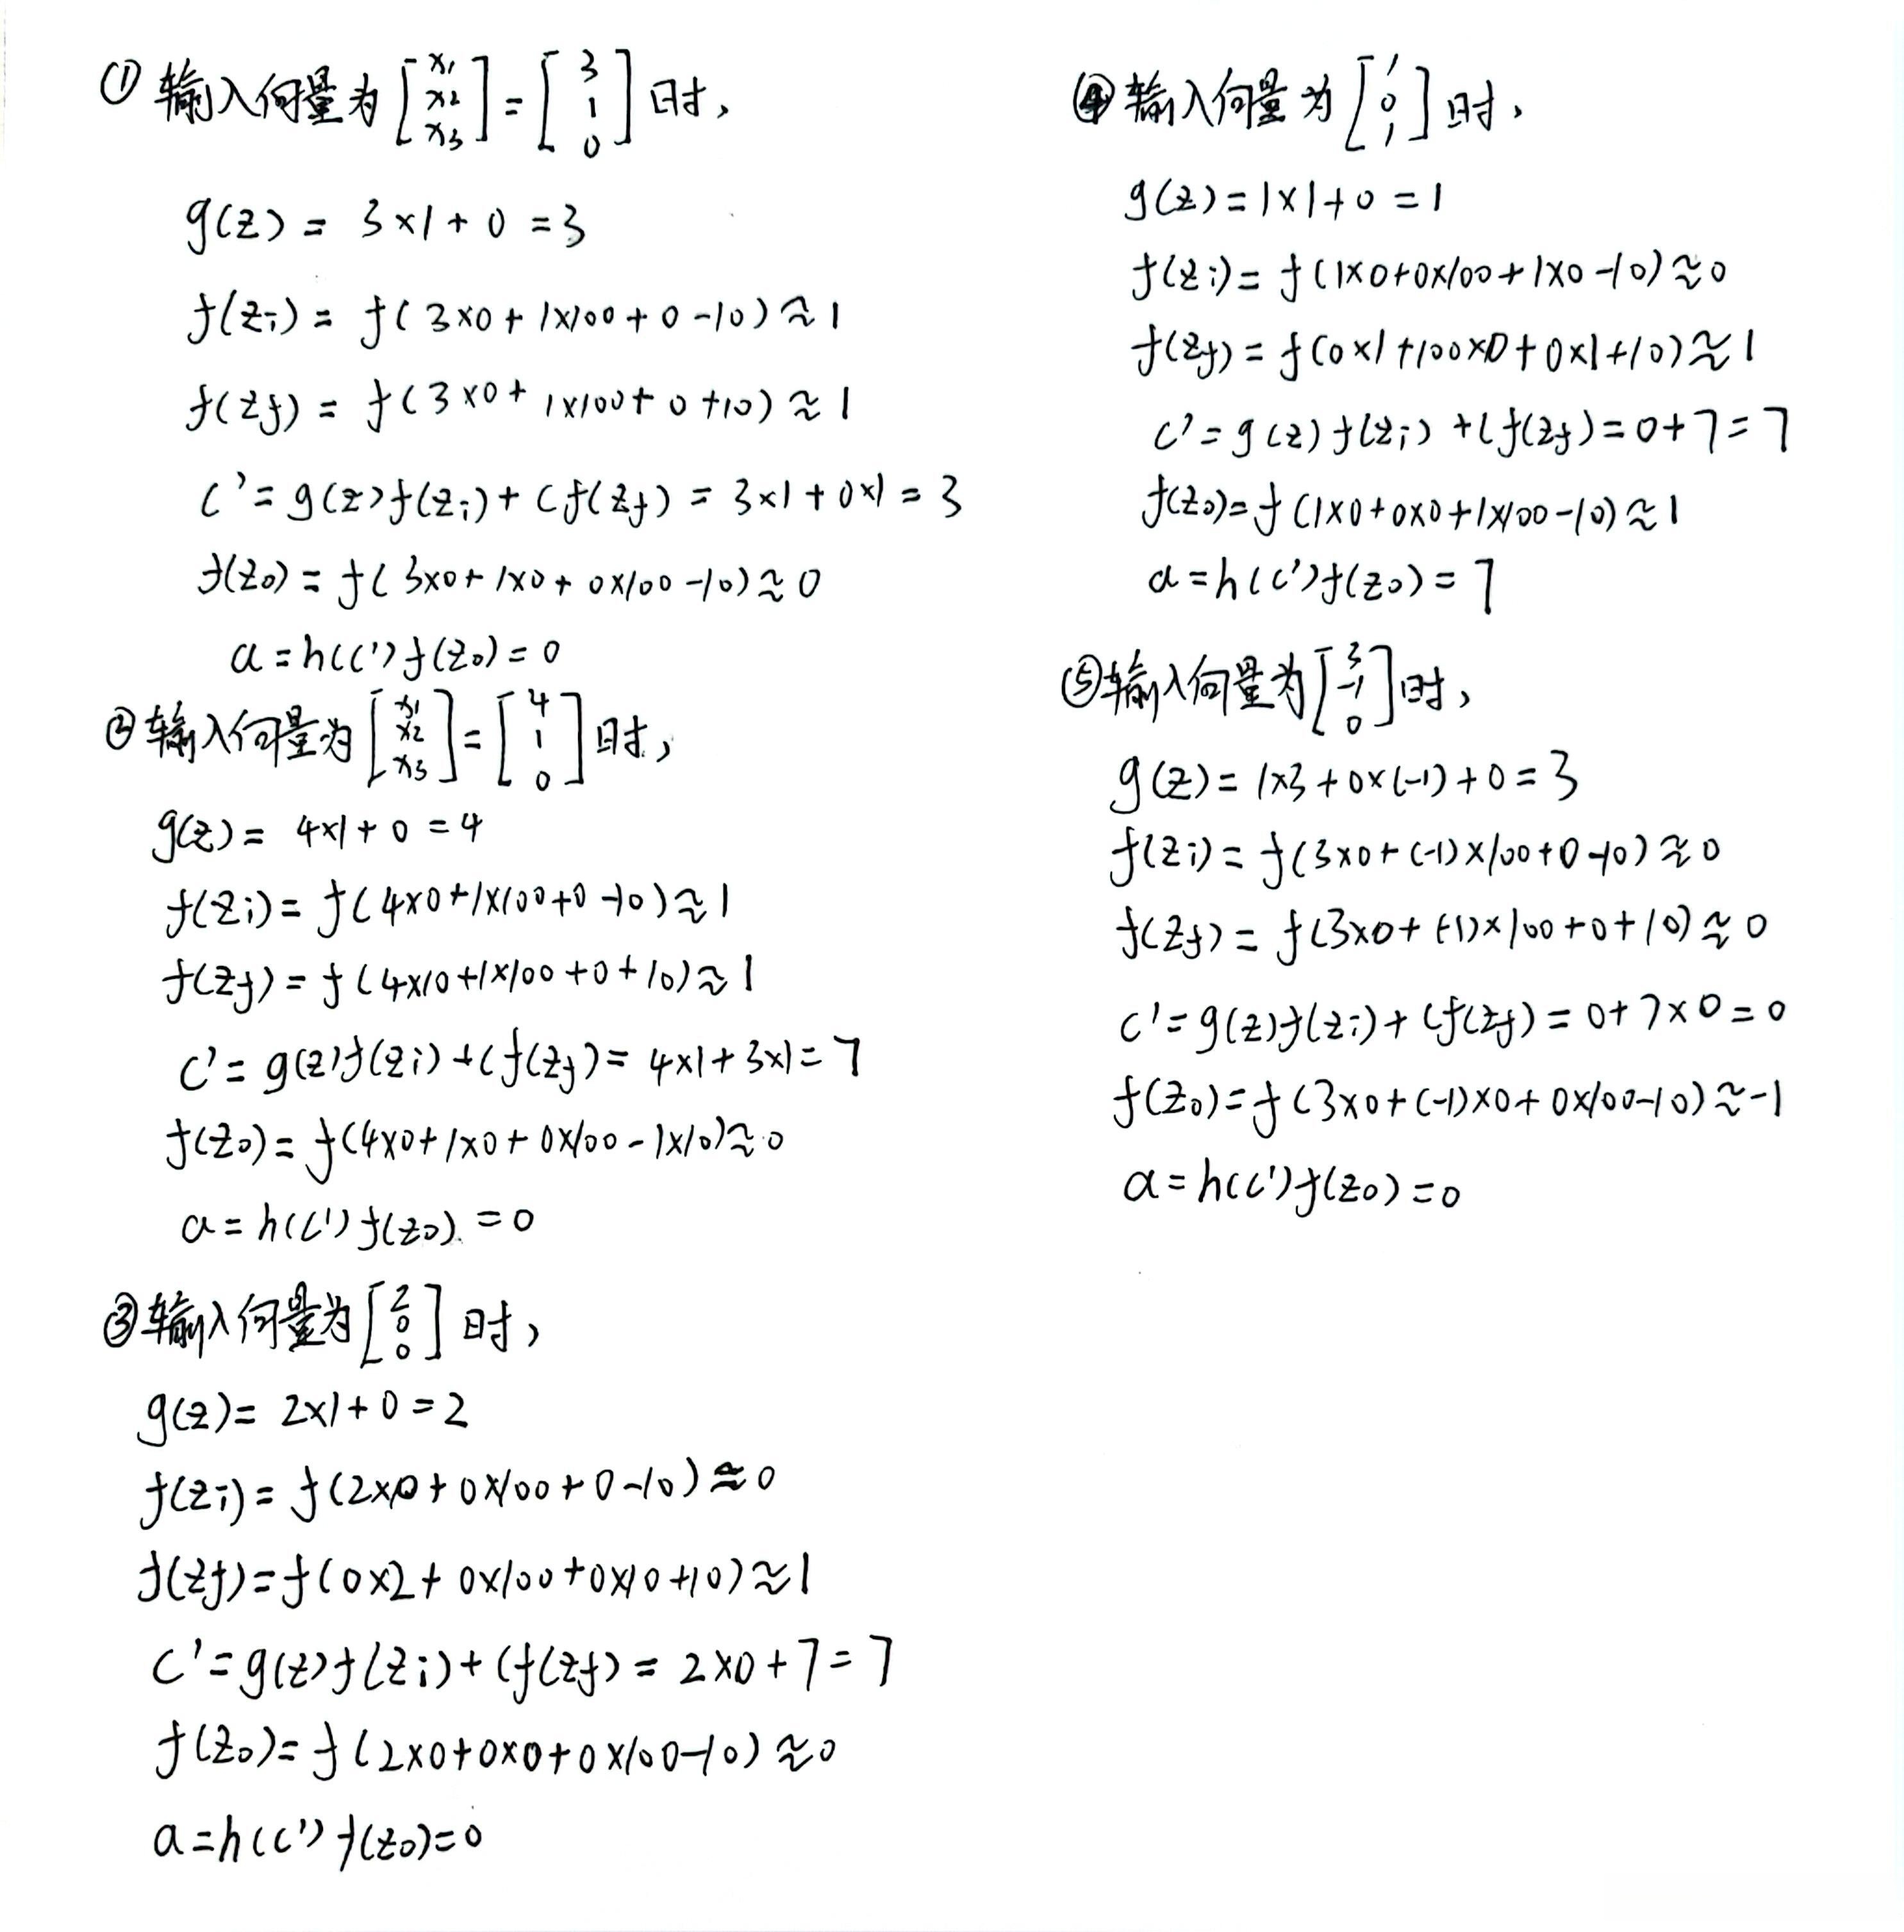 ① 输入向量为 [x1 x2 x3] = [3 1 0] 时,
g(z) = 3×1 + 0 = 3
f(zi) = f(3×0 + 1×100 + 0 -10) ≈ 1
f(zf) = f(3×0 + 1×100 + 0 +10) ≈ 1
c' = g(z)f(zi) + cf(zf) = 3×1 + 0×1 = 3
f(zo) = f(3×0 + 1×0 + 0×100 -10) ≈ 0
a = h(c')f(zo) = 0
② 输入向量为 [x1 x2 x3] = [4 1 0] 时,
g(z) = 4×1 + 0 = 4
f(zi) = f(4×0 + 1×100 + 0 -10) ≈ 1
f(zf) = f(4×10 + 1×100 + 0 + 10) ≈ 1
c' = g(z)f(zi) + cf(zf) = 4×1 + 3×1 = 7
f(zo) = f(4×0 + 1×0 + 0×100 - 1×10) ≈ 0
a = h(c')f(zo) = 0
③ 输入向量为 [2 0 0] 时,
g(z) = 2×1 + 0 = 2
f(zi) = f(2×0 + 0×100 + 0 -10) ≈ 0
f(zf) = f(0×2 + 0×100 + 0×10 +10) ≈ 1
c' = g(z)f(zi) + cf(zf) = 2×0 + 7 = 7
f(zo) = f(2×0 + 0×0 + 0×100 -10) ≈ 0
a = h(c')f(zo) = 0
④ 输入向量为 [1 0 1] 时,
g(z) = 1×1 + 0 = 1
f(zi) = f(1×0 + 0×100 + 1×0 -10) ≈ 0
f(zf) = f(0×1 + 100×0 + 0×1 + 10) ≈ 1
c' = g(z)f(zi) + cf(zf) = 0 + 7 = 7
f(zo) = f(1×0 + 0×0 + 1×100 -10) ≈ 1
a = h(c')f(zo) = 7
⑤ 输入向量为 [3 -1 0] 时,
g(z) = 1×3 + 0×(-1) + 0 = 3
f(zi) = f(3×0 + (-1)×100 + 0 -10) ≈ 0
f(zf) = f(3×0 + (-1)×100 + 0 + 10) ≈ 0
c' = g(z)f(zi) + cf(zf) = 0 + 7×0 = 0
f(zo) = f(3×0 + (-1)×0 + 0×100 -10) ≈ -1
a = h(c')f(zo) = 0